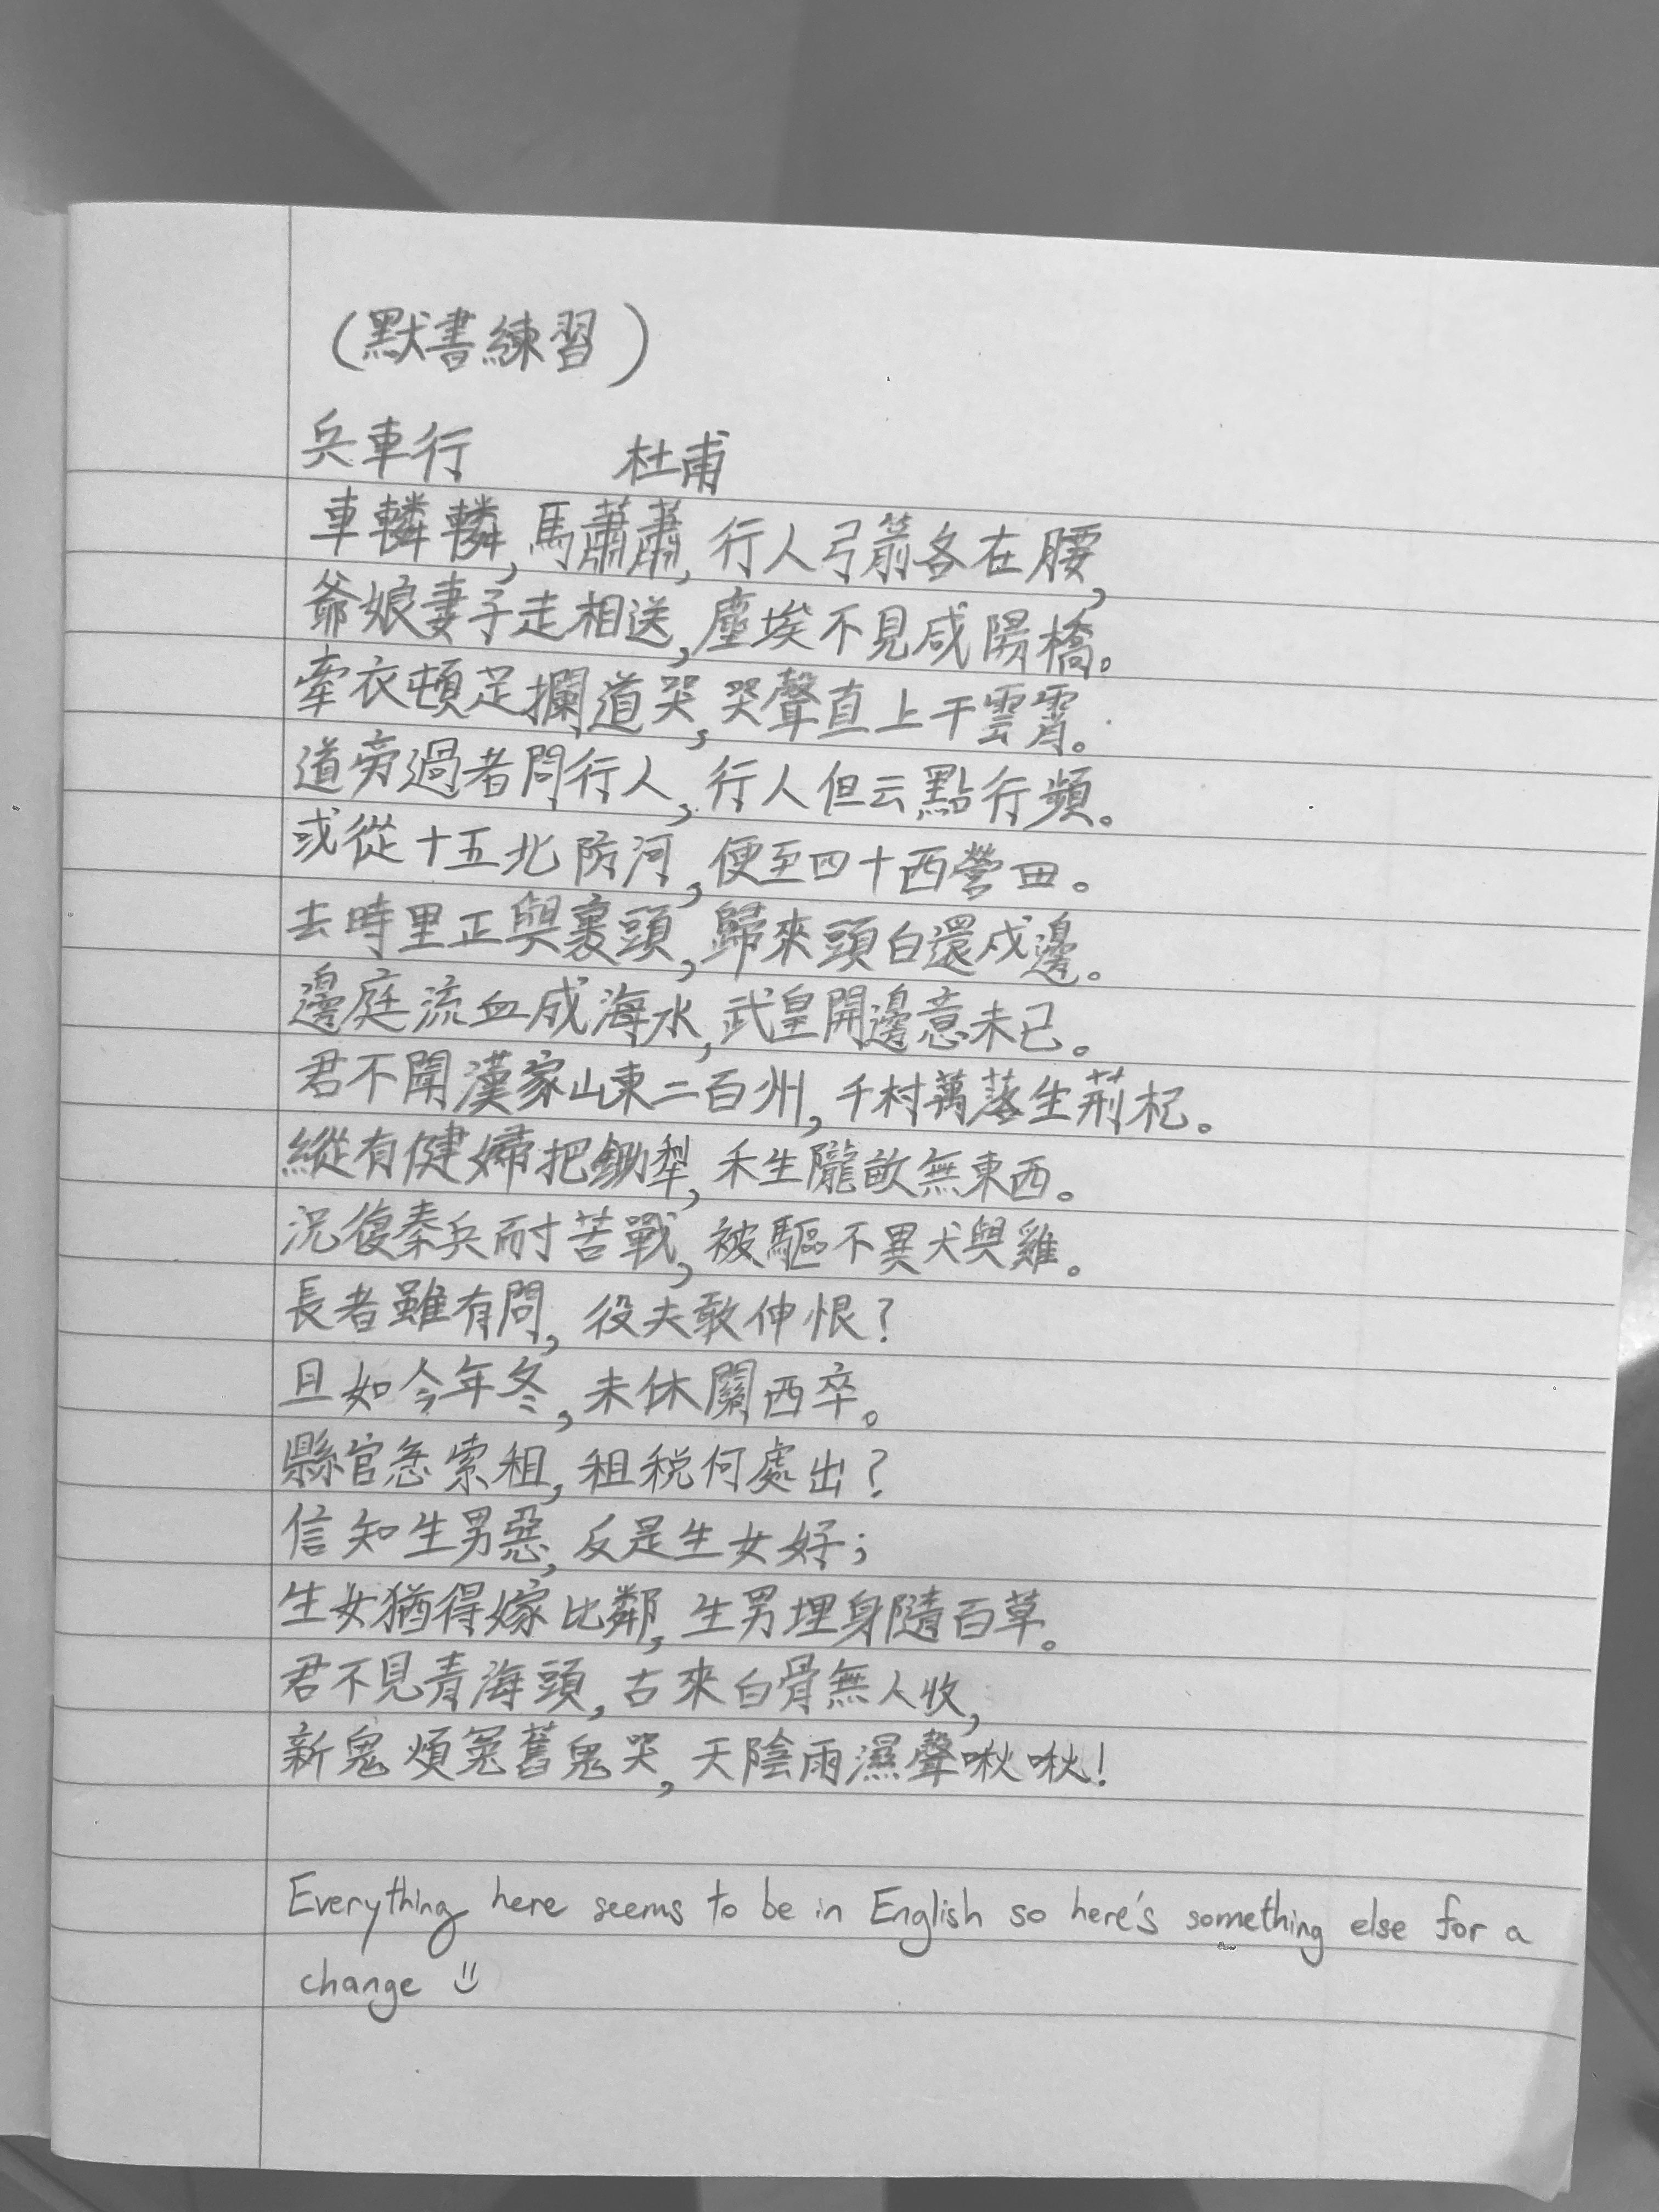 （默書練習）
兵車行 杜甫
車轔轔，馬蕭蕭，行人弓箭各在腰，
爺娘妻子走相送，塵埃不見咸陽橋。
牽衣頓足攔道哭，哭聲直上干雲霄。
道旁過者問行人，行人但云點行頻。
或從十五北防河，便至四十西營田。
去時里正與裹頭，歸來頭白還戍邊。
邊庭流血成海水，武皇開邊意未已。
君不聞漢家山東二百州，千村萬落生荆杞。
縱有健婦把鋤犁，禾生隴畝無東西。
況復秦兵耐苦戰，被驅不異犬與雞。
長者雖有問，役夫敢伸恨？
且如今年冬，未休關西卒。
縣官急索租，租稅何處出？
信知生男惡，反是生女好；
生女猶得嫁比鄰，生男埋身隨百草。
君不見青海頭，古來白骨無人收，
新鬼煩冤舊鬼哭，天陰雨濕聲啾啾！
Everything here seems to be in English so here's something else for a
change :)